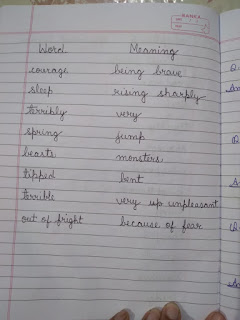 Word Meaning
courage being brave
sleep rising sharply
terribly very
spring jump
beasts monsters
tipped bent
terrible very up unpleasant
out of fright because of fear